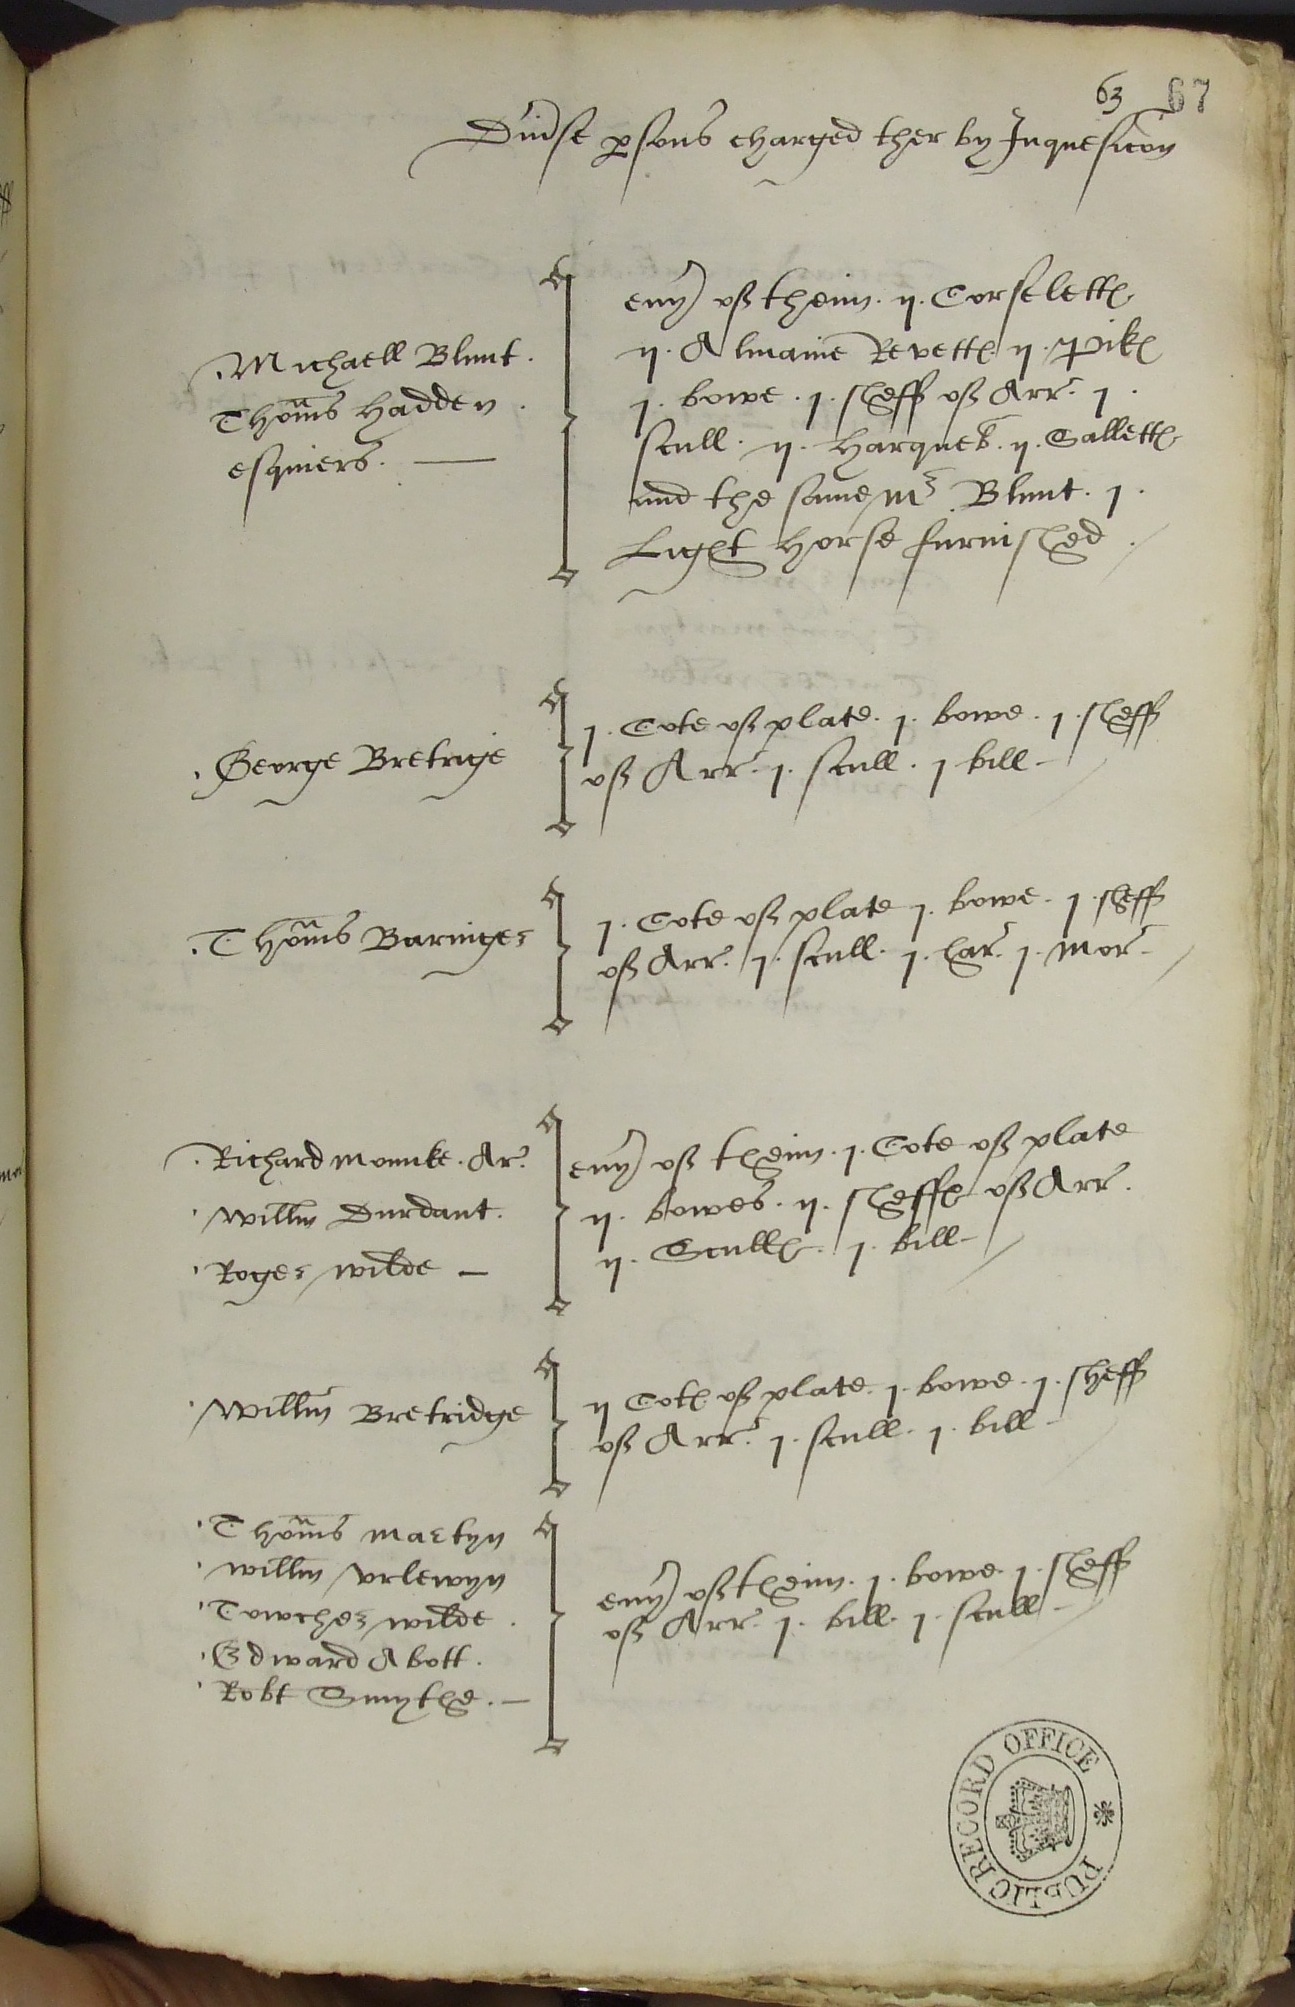 63 67
Diu'se p'sons charged ther by Inquesic'on
Michaell Blunt.
Thom's Hadden.
esquiers.
eu'y of theim. ij. Corselett
ij. Almaine Revett ij. Pik
j. bowe. j. sheff of Arr. j.
scull. ij. harqueb. ij. Sallett
and the same Mr Blunt. j.
Light Horse furnished
George Bretrige
j. Cote of plate. j. bowe. j. sheff
of Arr. j. scull. j bill
Thom's Baringer
j. Cote of plate j. bowe. j. sheff
of Arr. j. scull. j. har. j. mor
Richard Mounke. Ar.
Will'm Durdant.
Roger Wilde
eu'y of theim. j. Cote of plate
ij. bowes. ij. sheff of Arr.
ij. Scull. j. bill
Will'm Bretridge
ij Cot of plate. j. bowe. j. sheff
of Arr. j. scull. j. bill
Thom's Martyn
Will'm Urlewyn
Towcher Wilde.
Edward Abott.
Robt Smythe.
eu'y of theim. j. bowe. j. sheff
of Arr. j. bill. j. scull
PUBLIC RECORD OFFICE